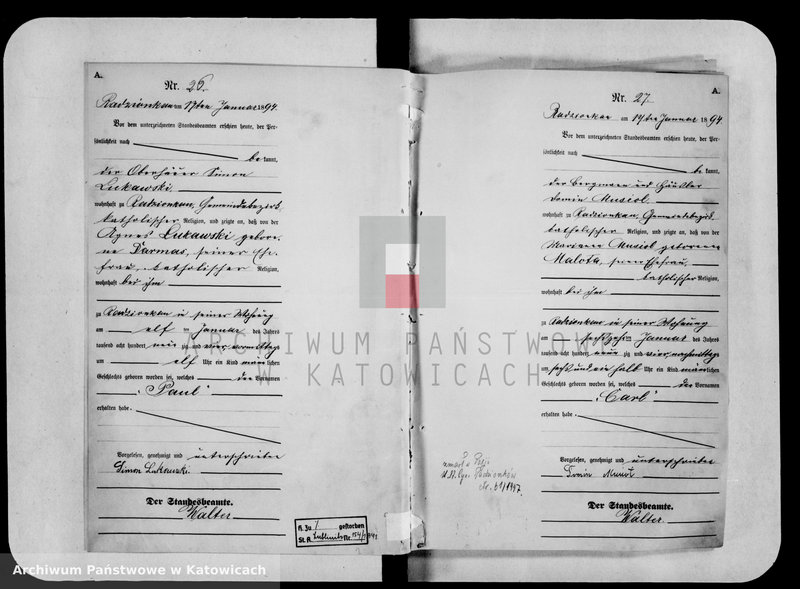 A.
Nr. 26.
Radzionkau am 17ten Januar 1894.
Vor dem unterzeichneten Standesbeamten erschien heute, der Per-
sönlichkeit nach
bekannt,
der Oberhäuer Simon
Lukawski
wohnhaft zu Radzionkau, Gemeindebezirk
katholischer Religion, und zeigte an, daß von der
Agnes Lukawski gebore-
ne Darmas, seiner Ehe-
frau, katholischer Religion,
wohnhaft bei ihm
zu Radzionkau in seiner Wohnung
am elf Januar des Jahres
tausend acht hundert neunzig und vier vormittags
um elf Uhr ein Kind männlichen
Geschlechts geboren worden sei, welches den Vornamen
"Paul"
erhalten habe.
Vorgelesen, genehmigt und unterschrieben
Simon Lukawski
Der Standesbeamte.
Walter
gestorben
St. A. Nr.
A.
Nr. 27
Radzionkau am 17ten Januar 1894
Vor dem unterzeichneten Standesbeamten erschien heute, der Per-
sönlichkeit nach
bekannt,
der Bergmann und Häusler
Musiol
wohnhaft zu Radzionkau, Gemeindebezirk,
katholischer Religion, und zeigte an, daß von der
Marianna Musiol geborenen
Malota, seiner Ehefrau,
katholischer Religion,
wohnhaft bei ihm
zu Radzionkau in seiner Wohnung
am sechszehn Januar des Jahres
tausend acht hundert neunzig und vier nachmittags
um sechs und ein halb Uhr ein Kind männlichen
Geschlechts geboren worden sei, welches den Vornamen
"Carl"
erhalten habe.
Vorgelesen, genehmigt und unterschrieben
Musiol
Der Standesbeamte.
Walter
zmarł
Radzionków
Nr. 61/1947
ARCHIWUM PAŃSTWOWE
W KATOWICACH
Archiwum Państwowe w Katowicach